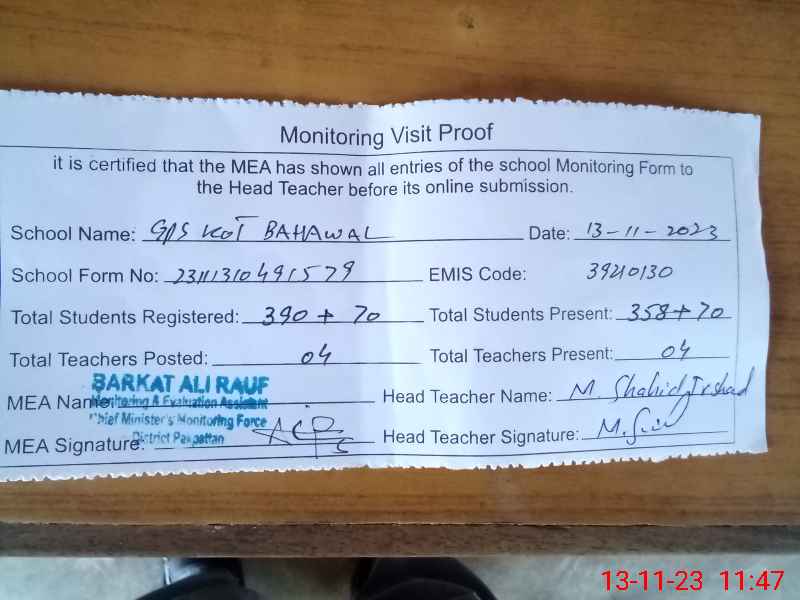 Monitoring Visit Proof
it is certified that the MEA has shown all entries of the school Monitoring Form to
the Head Teacher before its online submission.
School Name: GPS KOT BAHAWAL Date: 13-11-2023
School Form No: 23111310491579 EMIS Code: 39210130
Total Students Registered: 390 + 70 Total Students Present: 358+70
Total Teachers Posted: 04 Total Teachers Present: 04
BARKAT ALI RAUF
MEA Name: Monitoring & Evaluation Assistant Head Teacher Name: M. Shahid Irshad
Chief Minister's Monitoring Force
MEA Signature: District Pakpattan Head Teacher Signature:
13-11-23 11:47